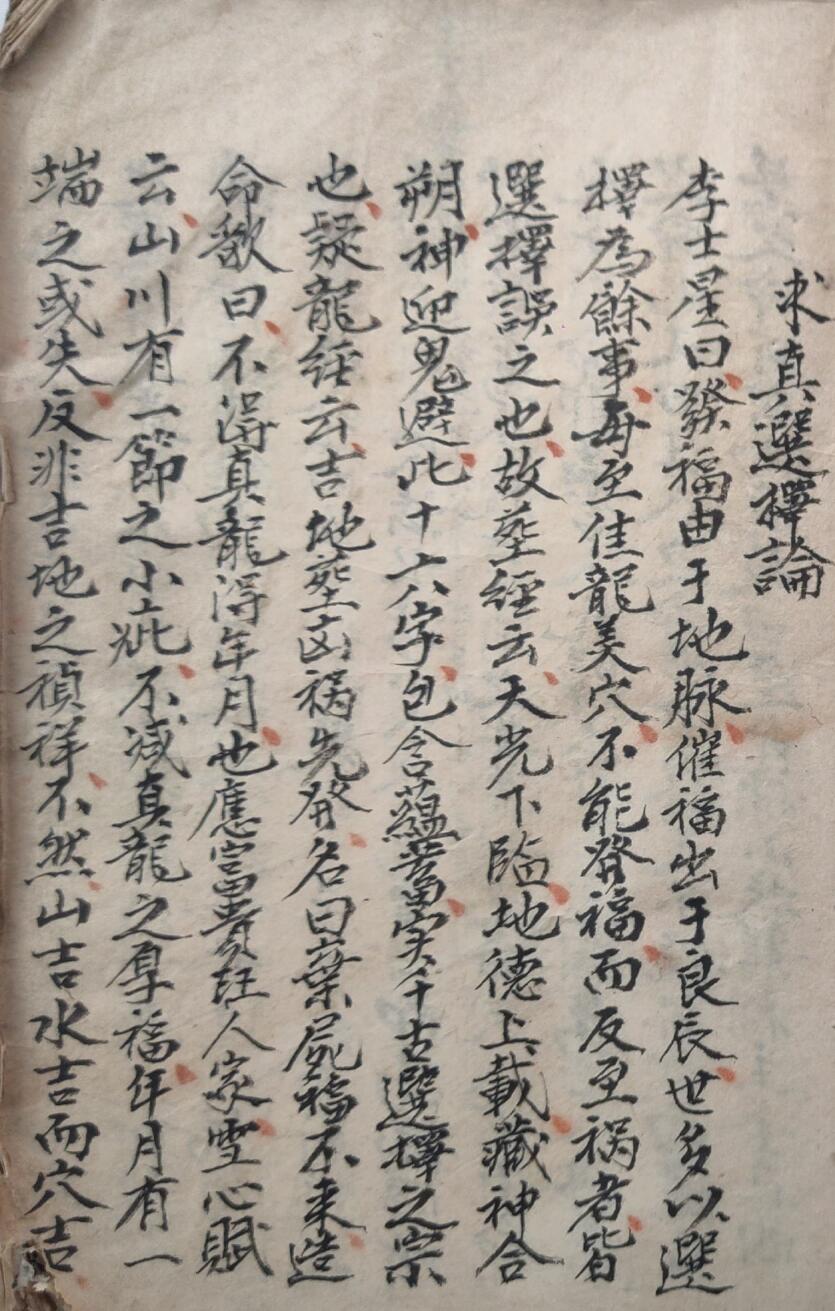 求真選擇論
李士星曰發福由于地脉催福出于良辰世多以選
擇為餘事每至佳龍美穴不能發福而反至祸者皆
選擇誤之也故塟經云天光下臨地德上載藏神合
朔神迎鬼避此十六八字包含蘊蓄实千古選擇之宗
也疑龍經云吉地塟凶祸先發名曰棄屍福不来造
命歌曰不得真龍得年月也應富貴旺人家雪心賦
云山川有一節之小疵不减真龍之厚福年月有一
端之或失反非吉地之禎祥不然山吉水吉而穴吉